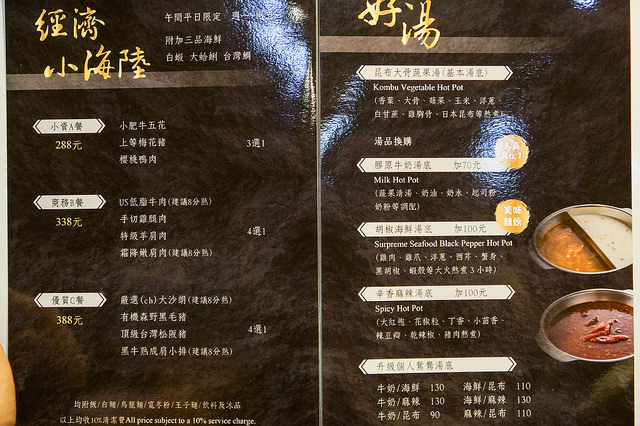 經濟
小海陸
午間平日限定
附加三品海鮮
白蝦 大蛤蜊 台灣鯛
小資A餐
288元
小肥牛五花
上等梅花豬
櫻桃鴨肉
3選1
商務B餐
338元
US低脂牛肉(建議8分熟)
手切雞腿肉
特級羊肩肉
霜降嫩肩肉(建議8分熟)
4選1
優質C餐
388元
嚴選(ch)大沙朗(建議8分熟)
有機森野黑毛豬
頂級台灣松阪豬
黑牛熟成肩小排(建議8分熟)
4選1
均附飯/白麵/烏龍麵/寬冬粉/王子麵/飲料及冰品
以上均收10%清潔費All price subject to a 10% service charge.
好湯
昆布大骨蔬果湯(基本湯底)
Kombu Vegetable Hot Pot
(香菜、大骨、蘋果、玉米、洋蔥
白甘蔗、雞胸骨、日本昆布等熬煮)
湯品換購
人氣
No.1
膠原牛奶湯底 加70元
Milk Hot Pot
(蔬果清湯、奶油、奶水、起司粉
奶粉等調配)
美味
胡椒海鮮湯底 加100元
Surpreme Seafood Black Pepper Hot Pot
(雞肉、雞爪、洋蔥、西芹、蟹身、
黑胡椒、蝦殼等大火熬煮3小時)
辛香麻辣湯底 加100元
Spicy Hot Pot
(大紅袍、花椒粒、丁香、小茴香、
辣豆瓣、乾辣椒、豬肉熬煮)
升級個人鴛鴦湯底
牛奶/海鮮 130 海鮮/昆布 110
牛奶/麻辣 130 海鮮/麻辣 130
牛奶/昆布 90 麻辣/昆布 110